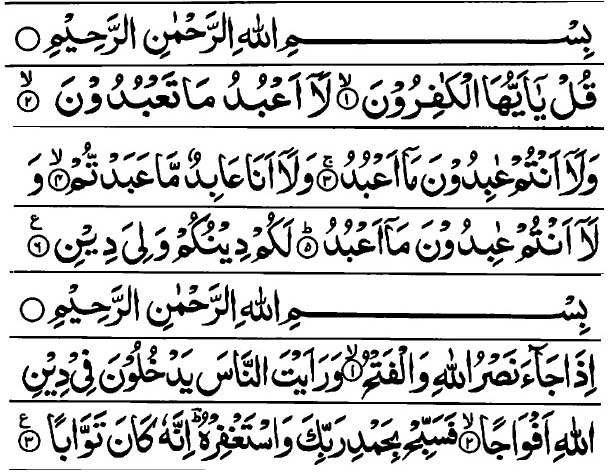 بِسْــــــــــــمِ اللهِ الرَّحْمٰنِ الرَّحِيْمِ ○
قُلْ يٰۤاَيُّهَا الْكٰفِرُوْنَ ۙ﴿۱﴾ لَاۤ اَعْبُدُ مَا تَعْبُدُوْنَ ۙ﴿۲﴾
وَلَاۤ اَنْتُمْ عٰبِدُوْنَ مَاۤ اَعْبُدُ ۚ﴿۳﴾ وَلَاۤ اَنَا عَابِدٌ مَّا عَبَدْتُّمْ ۙ﴿۴﴾ وَ
لَاۤ اَنْتُمْ عٰبِدُوْنَ مَاۤ اَعْبُدُ ؕ﴿۵﴾ لَكُمْ دِيْنُكُمْ وَلِيَ دِيْنِ ﴿۶﴾ ع
بِسْــــــــــــمِ اللهِ الرَّحْمٰنِ الرَّحِيْمِ ○
اِذَا جَآءَ نَصْرُ اللهِ وَالْفَتْحُ ۙ﴿۱﴾ وَرَاَيْتَ النَّاسَ يَدْخُلُوْنَ فِيْ دِيْنِ
اللهِ اَفْوَاجًا ۙ﴿۲﴾ فَسَبِّحْ بِحَمْدِ رَبِّكَ وَاسْتَغْفِرْهُ ؕ اِنَّهٗ كَانَ تَوَّابًا ﴿۳﴾ ع